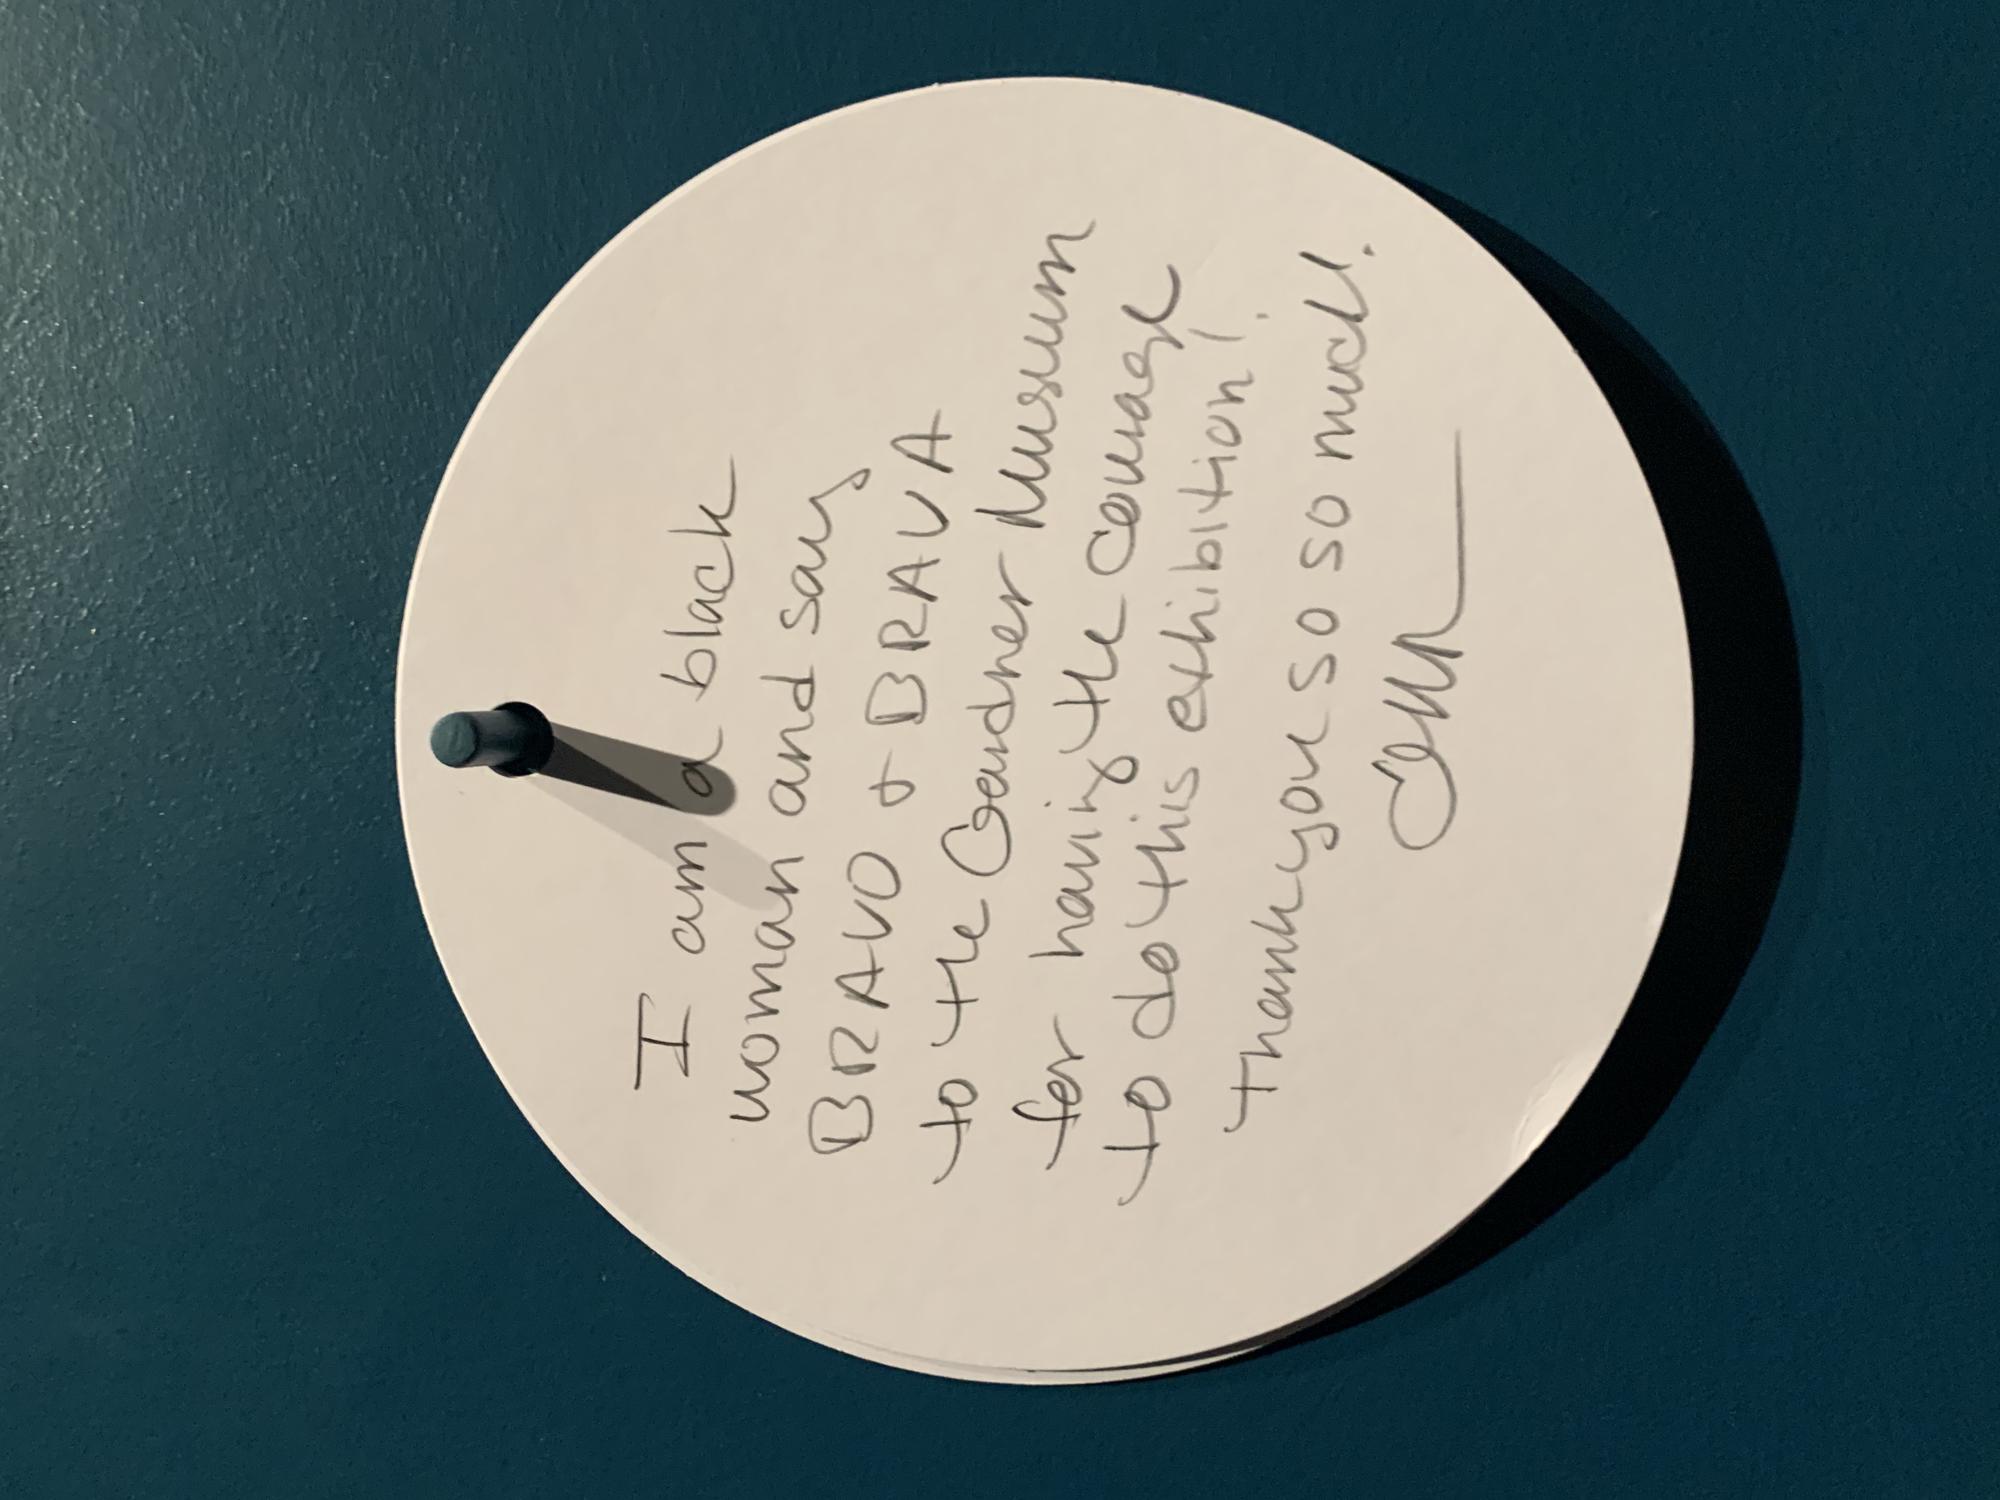 I am a black
woman and say
BRAVO & BRAVA
to the Gardner Museum
for having the courage
to do this exhibition!
Thank you so so much!